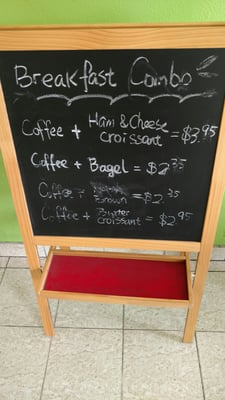 Breakfast Combo
Coffee + Ham & Cheese croissant = $3.95
Coffee + Bagel = $2.35
Coffee + Hash Brown = $2.35
Coffee + Butter croissant = $2.95